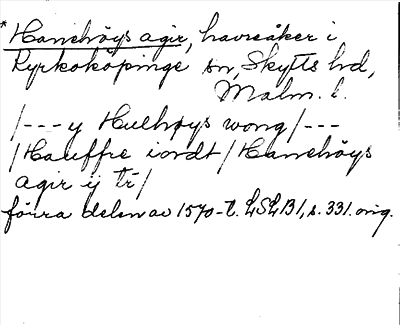 * Hanehöys agir, havreåker i
Kyrkoköpinge sn, Skytts hd,
Malm. l.
/--- y Hulhøys wong /---
/ Hauffre iordt / Hanehöys
agir ij tr /
förra delen av 1570-t. LSLB1, s. 331. orig.